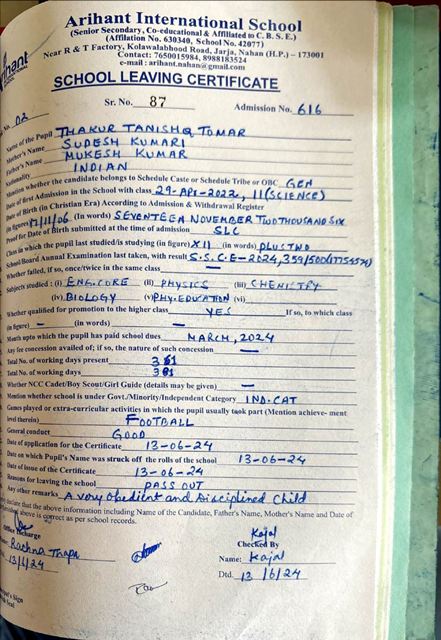 Arihant International School
(Senior Secondary, Co-educational & Affiliated to C. B. S. E.)
(Affilation No. 630340, School No. 42077)
Near R & T Factory, Kolawalabhood Road, Jarja, Nahan (H.P.) - 173001
Contact: 7650015984, 8988183524
e-mail : arihant.nahan@gmail.com
SCHOOL LEAVING CERTIFICATE
Sr. No. 87 Admission No. 616
No. 02
Name of the Pupil THAKUR TANISHQ TOMAR
Mother's Name SUDESH KUMARI
Father's Name MUKESH KUMAR
Nationality INDIAN
Mention whether the candidate belongs to Schedule Caste or Schedule Tribe or OBC GEN
Date of first Admission in the School with class 29-APR-2022, 11(SCIENCE)
Date of Birth (in Christian Era) According to Admission & Withdrawal Register
(in figures) 17/11/06 (In words) SEVENTEEN NOVEMBER TWO THOUSAND SIX
Proof for Date of Birth submitted at the time of admission SLC
Class in which the pupil last studied/is studying (in figure) XII (in words) PLUS TWO
School/Board Annual Examination last taken, with result S.S.C.E-2024, 359/500
Whether failed, if so, once/twice in the same class —
Subjects studied : (i) ENG.CORE (ii) PHYSICS (iii) CHEMISTRY
(iv) BIOLOGY (v) PHY.EDUCATION (vi)
Whether qualified for promotion to the higher class YES If so, to which class
(in figure) — (in words) —
Month upto which the pupil has paid school dues MARCH, 2024
Any fee concession availed of; if so, the nature of such concession —
Total No. of working days present
Total No. of working days
Whether NCC Cadet/Boy Scout/Girl Guide (details may be given) —
Mention whether school is under Govt./Minority/Independent Category IND.CAT
Games played or extra-curricular activities in which the pupil usually took part (Mention achieve- ment
level therein) FOOTBALL
General conduct GOOD
Date of application for the Certificate 13-06-24
Date on which Pupil's Name was struck off the rolls of the school 13-06-24
Date of issue of the Certificate 13-06-24
Reasons for leaving the school PASS OUT
Any other remarks A very Obedient and Disciplined Child
declare that the above information including Name of the Candidate, Father's Name, Mother's Name and Date of
above is correct as per school records.
Office Incharge
Rachna Thapa
13/6/24
Kajal
Checked By
Name: Kajal
Dtd. 13/6/24